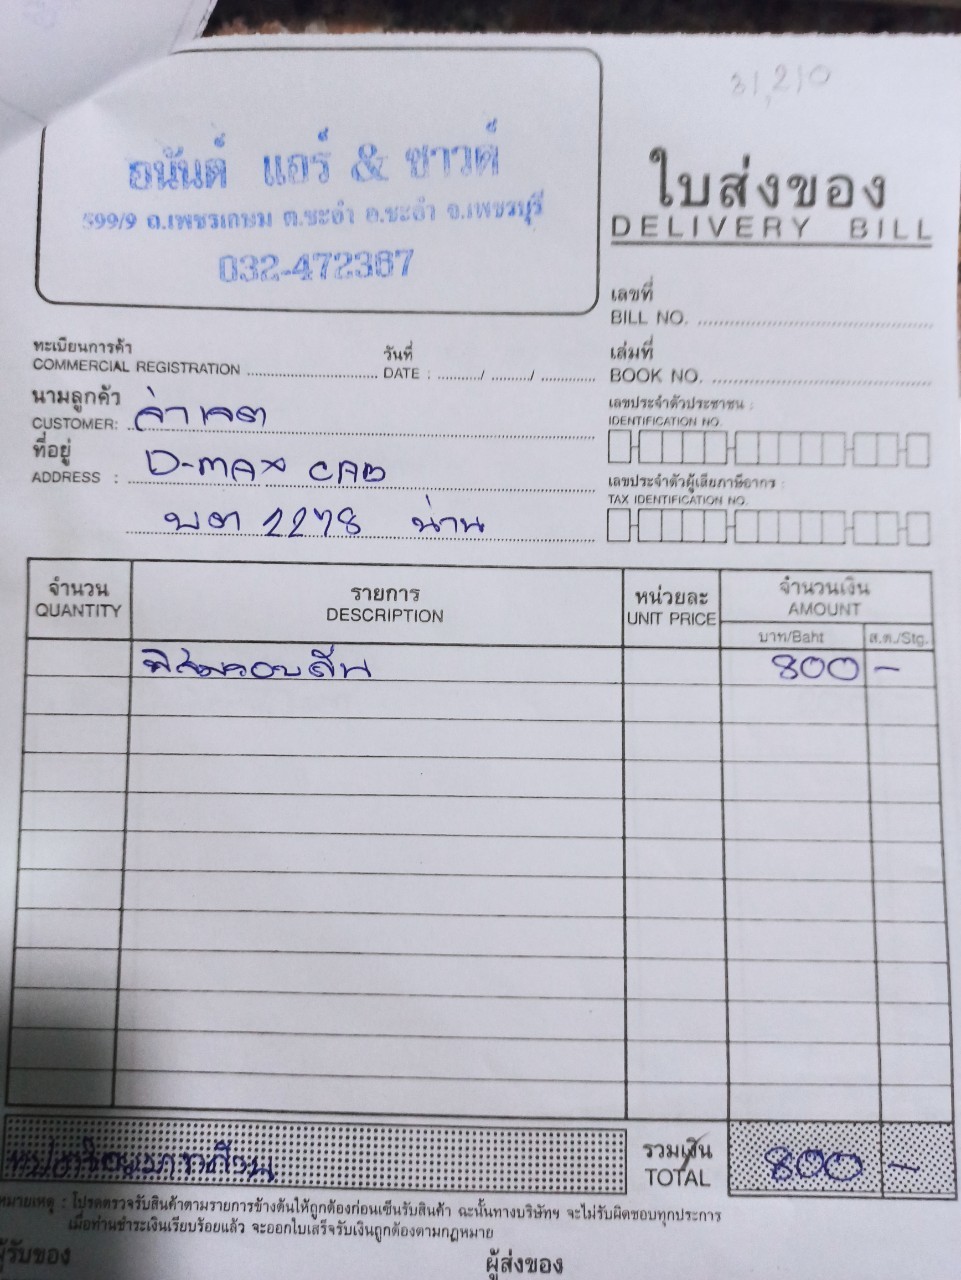 31,210
อนันต์ แอร์ & ซาวด์
599/9 ถ.เพชรเกษม ต.ชะอำ อ.ชะอำ จ.เพชรบุรี
032-472367
ใบส่งของ
DELIVERY BILL
เลขที่
BILL NO.
เล่มที่
BOOK NO.
ทะเบียนการค้า
COMMERCIAL REGISTRATION
วันที่
DATE : / /
นามลูกค้า
CUSTOMER:
ที่อยู่
ADDRESS : D-MAX CAB
บต 2278 น่าน
เลขประจำตัวประชาชน :
IDENTIFICATION NO.
เลขประจำตัวผู้เสียภาษีอากร :
TAX IDENTIFICATION NO.
จำนวน รายการ หน่วยละ จำนวนเงิน
QUANTITY DESCRIPTION UNIT PRICE AMOUNT
บาท/Baht ส.ต./Stg.
ฟิล์มรอบคัน 800 -
รวมเงิน
TOTAL 800 -
หมายเหตุ : โปรดตรวจรับสินค้าตามรายการข้างต้นให้ถูกต้องก่อนเซ็นรับสินค้า ฉะนั้นทางบริษัทฯ จะไม่รับผิดชอบทุกประการ
เมื่อท่านชำระเงินเรียบร้อยแล้ว จะออกใบเสร็จรับเงินถูกต้องตามกฎหมาย
ผู้รับของ ผู้ส่งของ